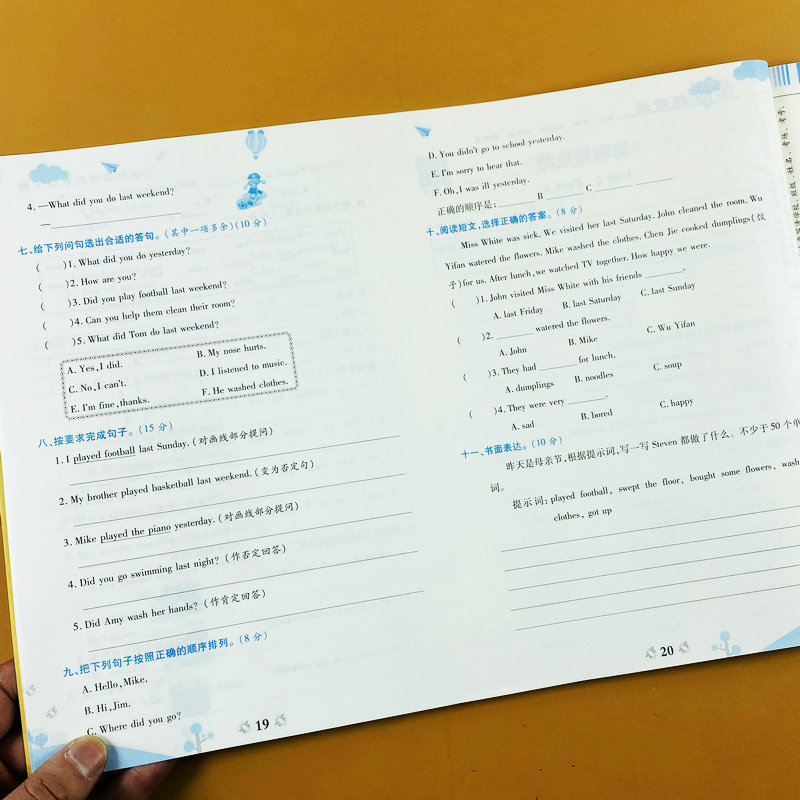 4. —What did you do last weekend?
—
七、给下列问句选出合适的答句。(其中一项多余)(10 分)
(    )1. What did you do yesterday?
(    )2. How are you?
(    )3. Did you play football last weekend?
(    )4. Can you help them clean their room?
(    )5. What did Tom do last weekend?
A. Yes, I did. B. My nose hurts.
C. No, I can't. D. I listened to music.
E. I'm fine, thanks. F. He washed clothes.
八、按要求完成句子。(15 分)
1. I played football last Sunday. (对画线部分提问)
2. My brother played basketball last weekend. (变为否定句)
3. Mike played the piano yesterday. (对画线部分提问)
4. Did you go swimming last night? (作否定回答)
5. Did Amy wash her hands? (作肯定回答)
九、把下列句子按照正确的顺序排列。(8 分)
A. Hello, Mike.
B. Hi, Jim.
C. Where did you go?
19
D. You didn't go to school yesterday.
E. I'm sorry to hear that.
F. Oh, I was ill yesterday.
正确的顺序是: ______ B ______ C ______ ______
十、阅读短文,选择正确的答案。(8 分)
Miss White was sick. We visited her last Saturday. John cleaned the room. Wu
Yifan watered the flowers. Mike washed the clothes. Chen Jie cooked dumplings (饺
子) for us. After lunch, we watched TV together. How happy we were.
(    )1. John visited Miss White with his friends ______.
A. last Friday B. last Saturday C. last Sunday
(    )2. ______ watered the flowers.
A. John B. Mike C. Wu Yifan
(    )3. They had ______ for lunch.
A. dumplings B. noodles C. soup
(    )4. They were very ______.
A. sad B. bored C. happy
十一、书面表达。(10 分)
昨天是母亲节,根据提示词,写一写 Steven 都做了什么。不少于 50 个单
词。
提示词: played football, swept the floor, bought some flowers, wash
clothes, got up
20